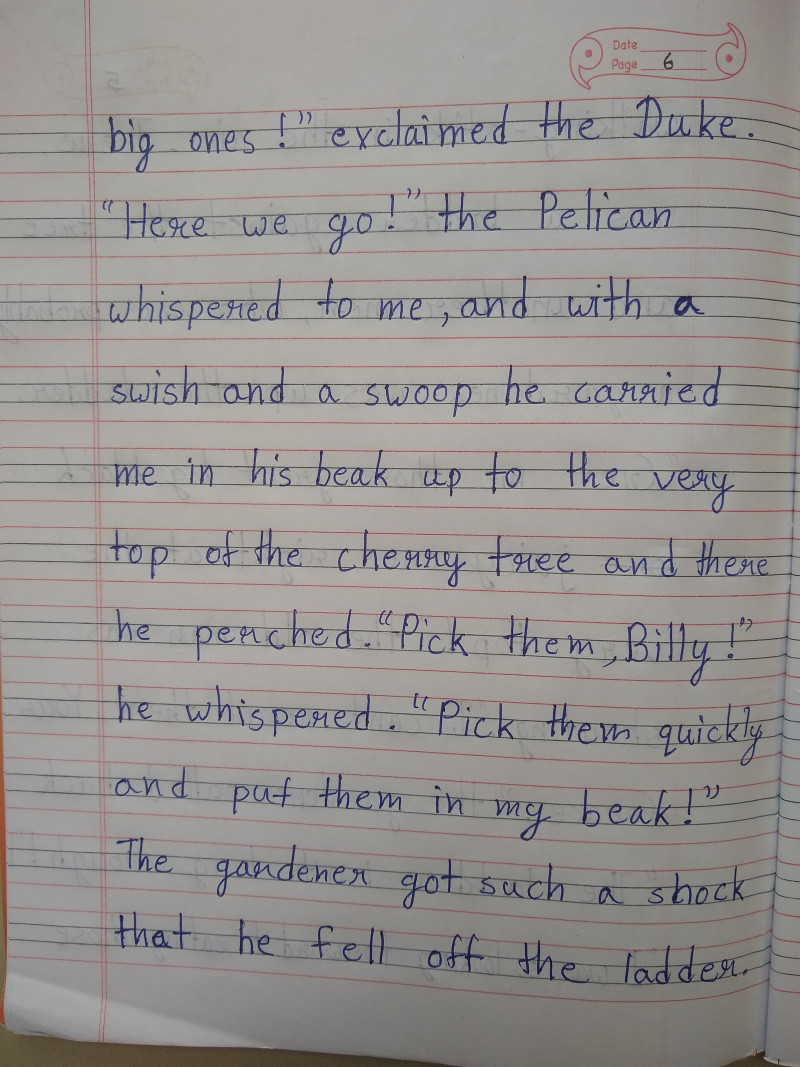 Date
Page 6
big ones!" exclaimed the Duke.
"Here we go!" the Pelican
whispered to me, and with a
swish and a swoop he carried
me in his beak up to the very
top of the cherry tree and there
he perched. "Pick them, Billy!"
he whispered. "Pick them quickly
and put them in my beak!"
The gardener got such a shock
that he fell off the ladder.